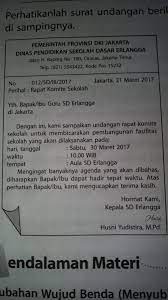 Perhatikanlah surat undangan beri
di sampingnya.
PEMERINTAH PROVINSI DKI JAKARTA
DINAS PENDIDIKAN SEKOLAH DASAR ERLANGGA
Jalan H. Baping No. 100, Ciracas, Jakarta Timur
012/SD/III/2017 Jakarta, 21 Maret 2017
Perihal : Rapat Komite Sekolah
Yth. Bapak/Ibu Guru SD Erlangga
di Jakarta
Dengan ini, kami sampaikan undangan rapat komite
sekolah untuk membicarakan pembangunan fasilitas
sekolah yang akan dilaksanakan pada:
hari, tanggal : Sabtu, 30 Maret 2017
waktu : 10.00 WIB
tempat : Aula SD Erlangga
Mengingat banyaknya agenda yang akan dibahas,
diharapkan Bapak/Ibu dapat hadir tepat waktu. Atas
perhatian Bapak/Ibu, kami mengucapkan terima kasih.
Hormat Kami,
Kepala SD Erlangga
Husni Yudistira, M.Pd
endalaman Materi
ubahan Wujud Benda (Menyu